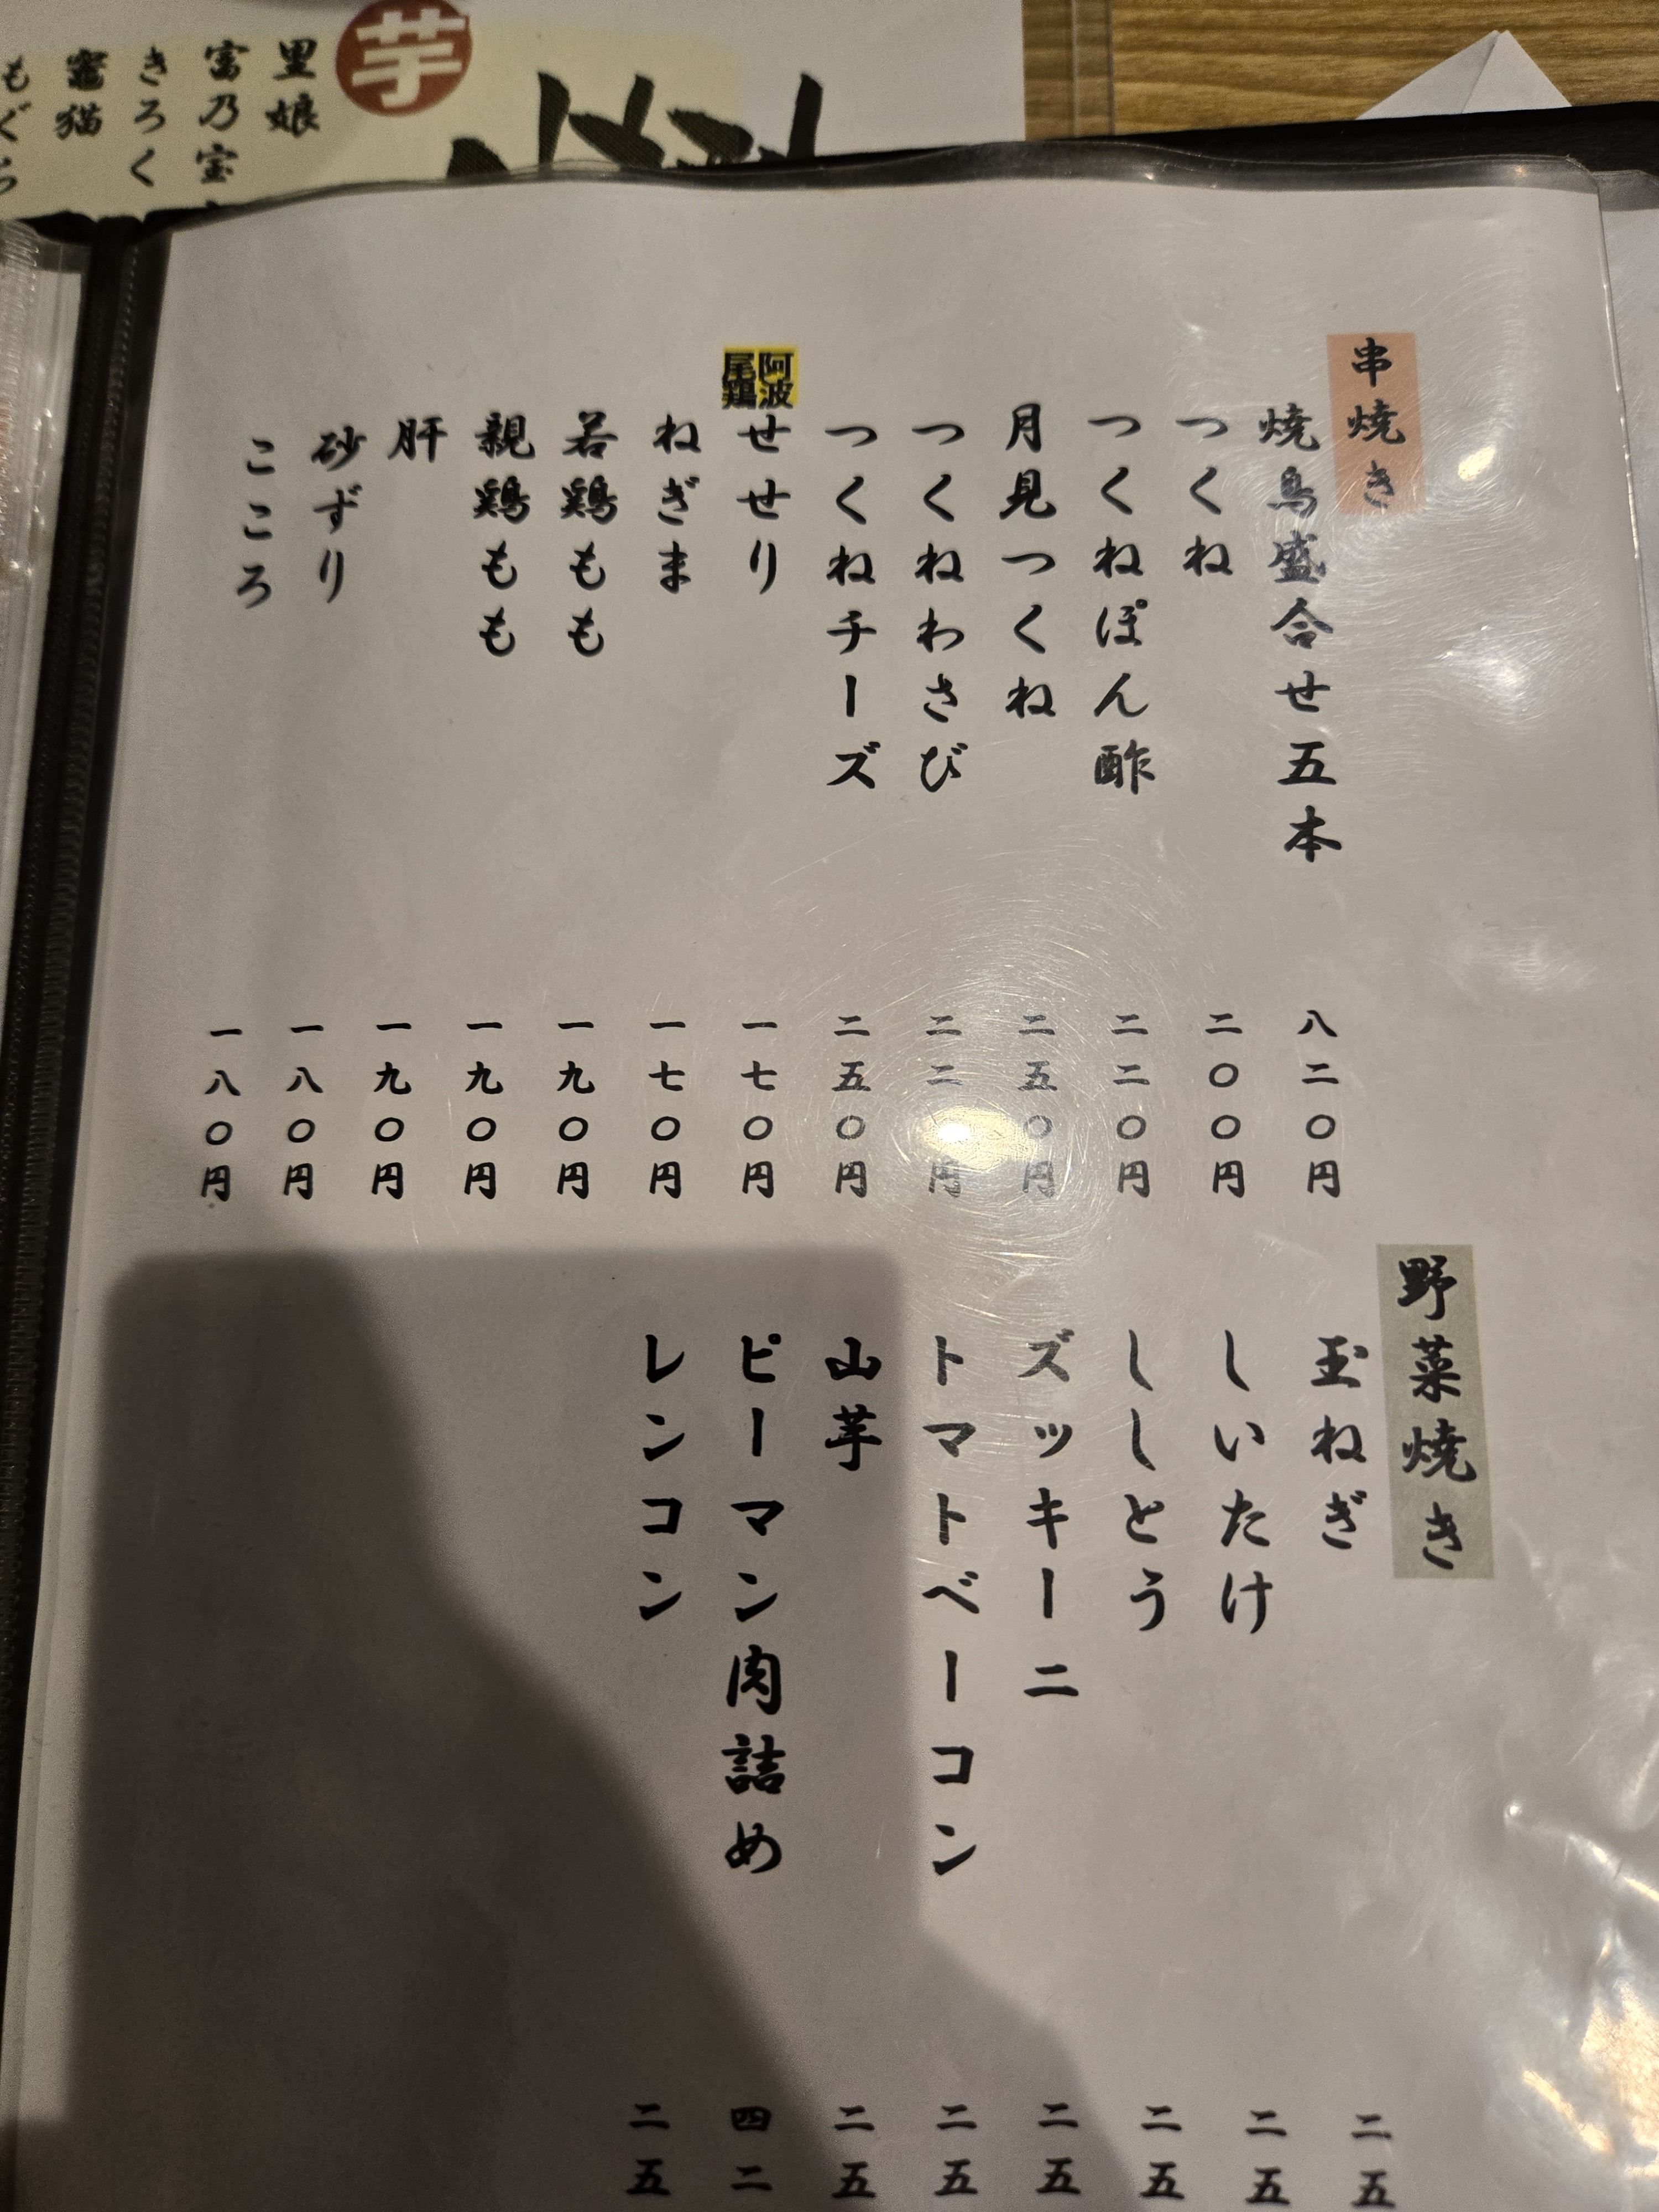 芋
里娘
富乃宝
きろく
竈猫
串焼き
焼鳥盛合せ五本 八二〇円
つくね 二〇〇円
つくねぽん酢 二二〇円
月見つくね 二五〇円
つくねわさび 二二 円
つくねチーズ 二五〇円
阿波尾鶏 せせり 一七〇円
ねぎま 一七〇円
若鶏もも 一九〇円
親鶏もも 一九〇円
肝 一九〇円
砂ずり 一八〇円
こころ 一八〇円
野菜焼き
玉ねぎ 二五
しいたけ 二五
ししとう 二五
ズッキーニ 二五
トマトベーコン 二五
山芋 二五
ピーマン肉詰め 四二
レンコン 二五